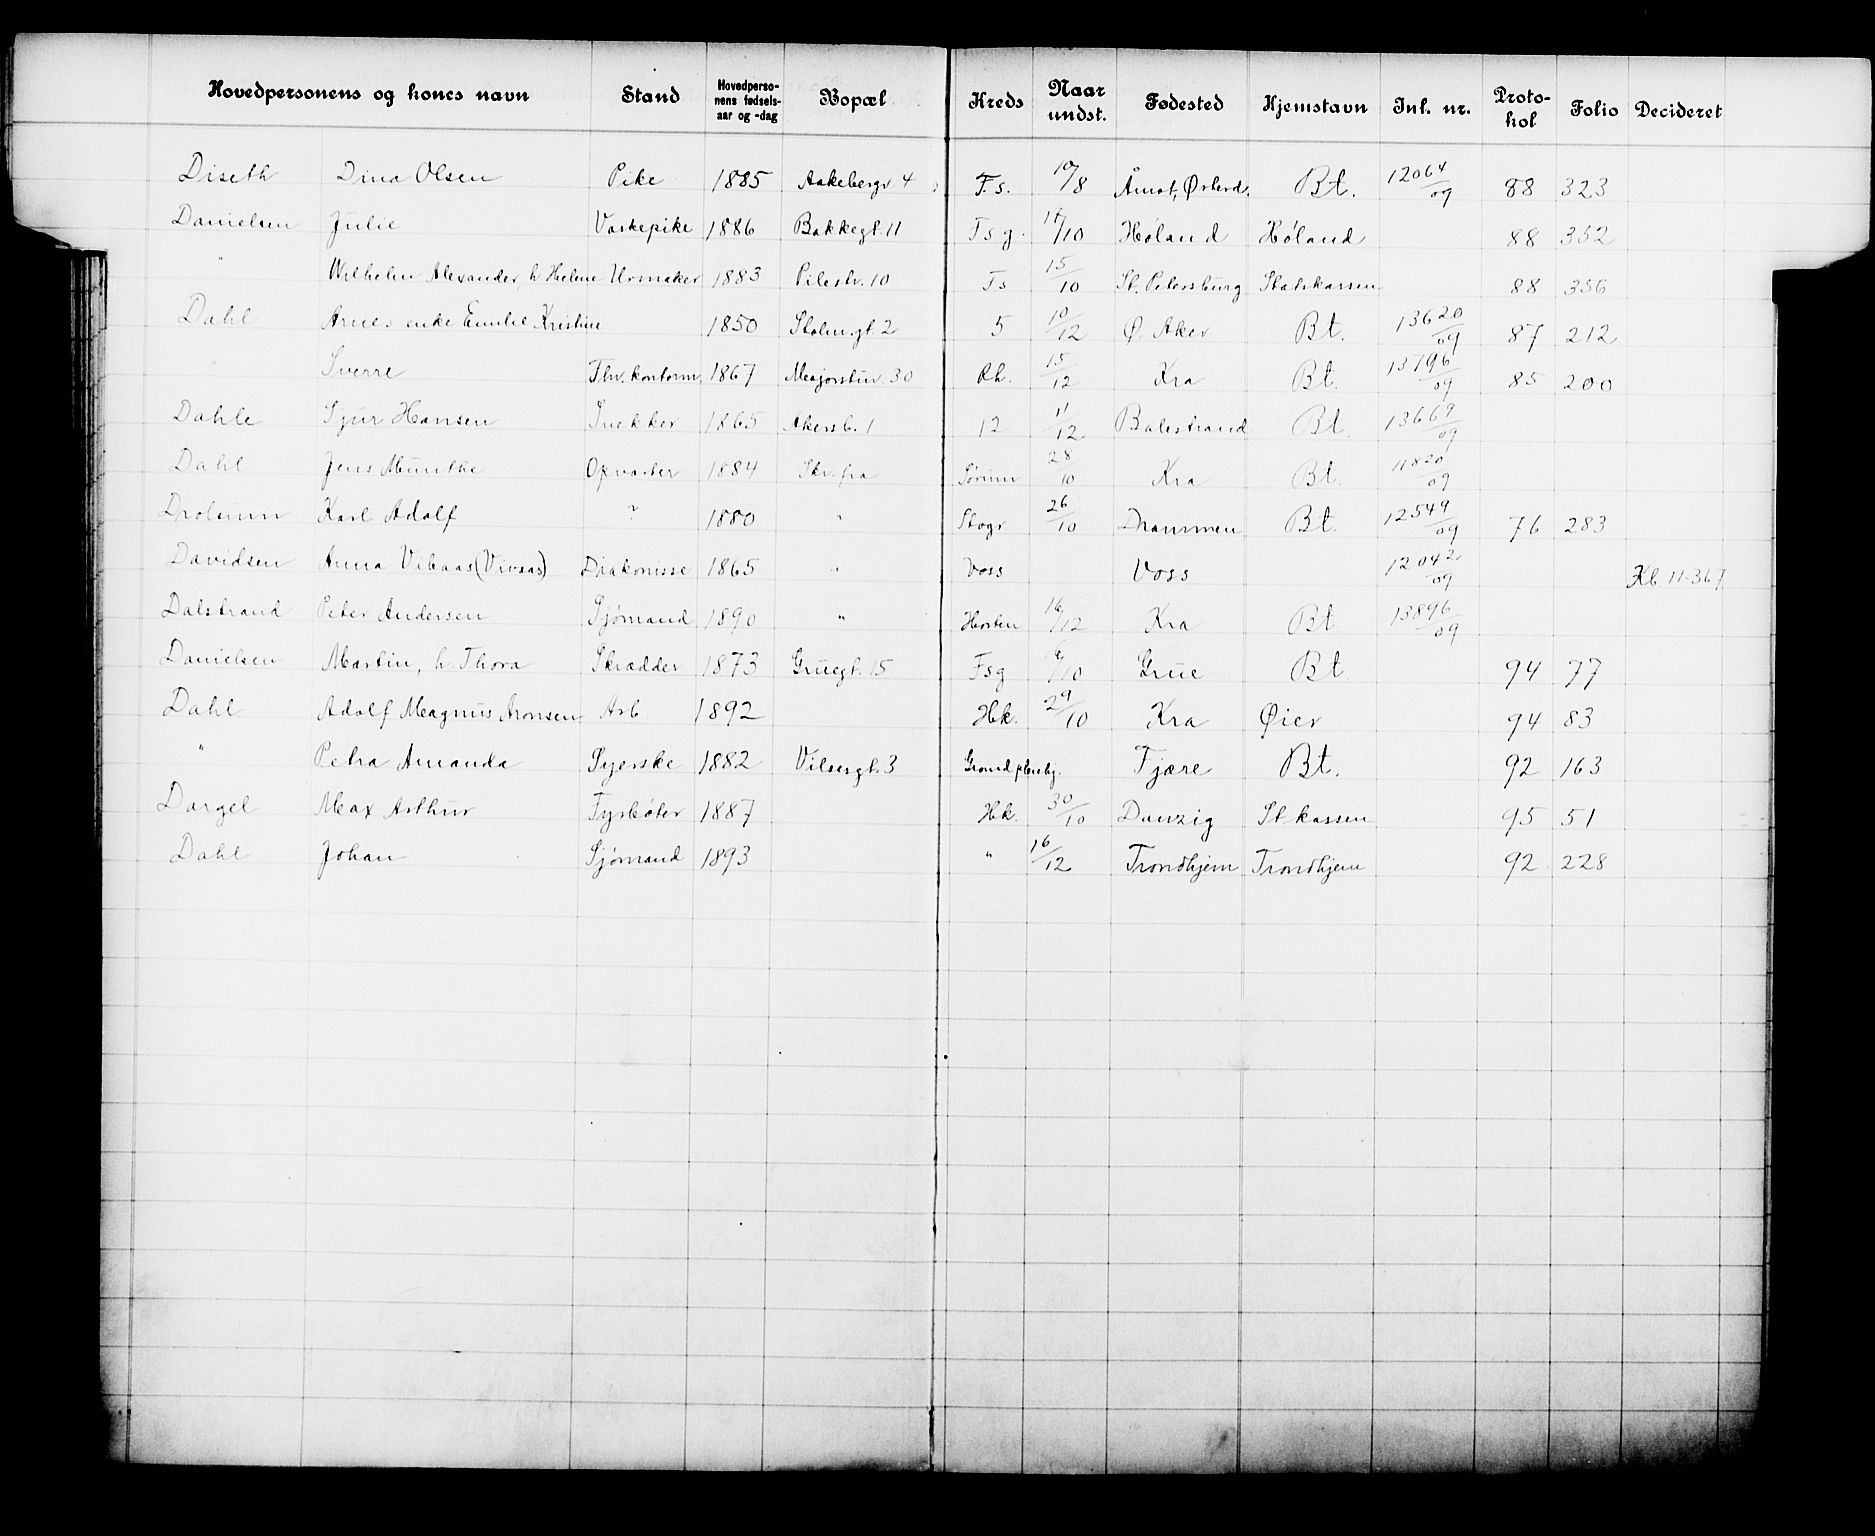 Hovedpersonens og kones navn Stand Hovedpersonens fødselsaar og -dag Bopæl Kreds Naar undst. Fødested Hjemstavn Inl. nr. Protokol Folio Decideret
Diseth Dina Olsen Pike 1885 Aakebergv 4 F.s. 10/8 Åmot, Østerd. Bt. 12064/09 88 323
Danielsen Julie Vaskepike 1886 Bakkegt. 11 Fsg. /10 Høland Høland 88 352
" Wilhelm Alexander, h. Helene Urmaker 1883 Pilestr. 10 Fs 15/10 St. Petersburg Statskassen 88 356
Dahl Arnes enke Emilie Kristine 1850 Stolm.gt. 2 5 10/12 Ø. Aker Bt. 13620/09 87 212
" Sverre Fhv. kontorm. 1867 Majorstuv. 30 Rh. 15/12 Kra Bt. 13796/09 85 200
Dahle Sjur Hansen Snekker 1865 Akersb. 1 12 11/12 Balestrand Bt. 13669/09
Dahl Jens Munthe Opvarter 1884 Skr. fra Sørum 28/10 Kra Bt. 11820/09
Drolsum Karl Adolf ? 1880 " Skogr. 26/10 Drammen Bt. 12549/09 76 283
Davidsen Anna Vibaas (Vivaas) Diakonisse 1865 " Voss Voss 12042/09 Kl. 11-367
Dalstrand Peter Andersen Sjømand 1890 " Horten 16/12 Kra Bt. 13896/09
Danielsen Martin, h. Thora Skrædder 1873 Gruegt. 15 Fsg /10 Grue Bt. 94 77
Dahl Adolf Magnus Aronsen Arb. 1892 Hk. 29/10 Kra Øier 94 83
" Petra Amanda Syerske 1882 Vibesgt. 3 Fjære Bt. 92 163
Dargel Max Arthur Fyrbøter 1887 Hk. 30/10 Danzig St. kassen 95 51
Dahl Johan Sjømand 1893 " 16/12 Trondhjem Trondhjem 92 228